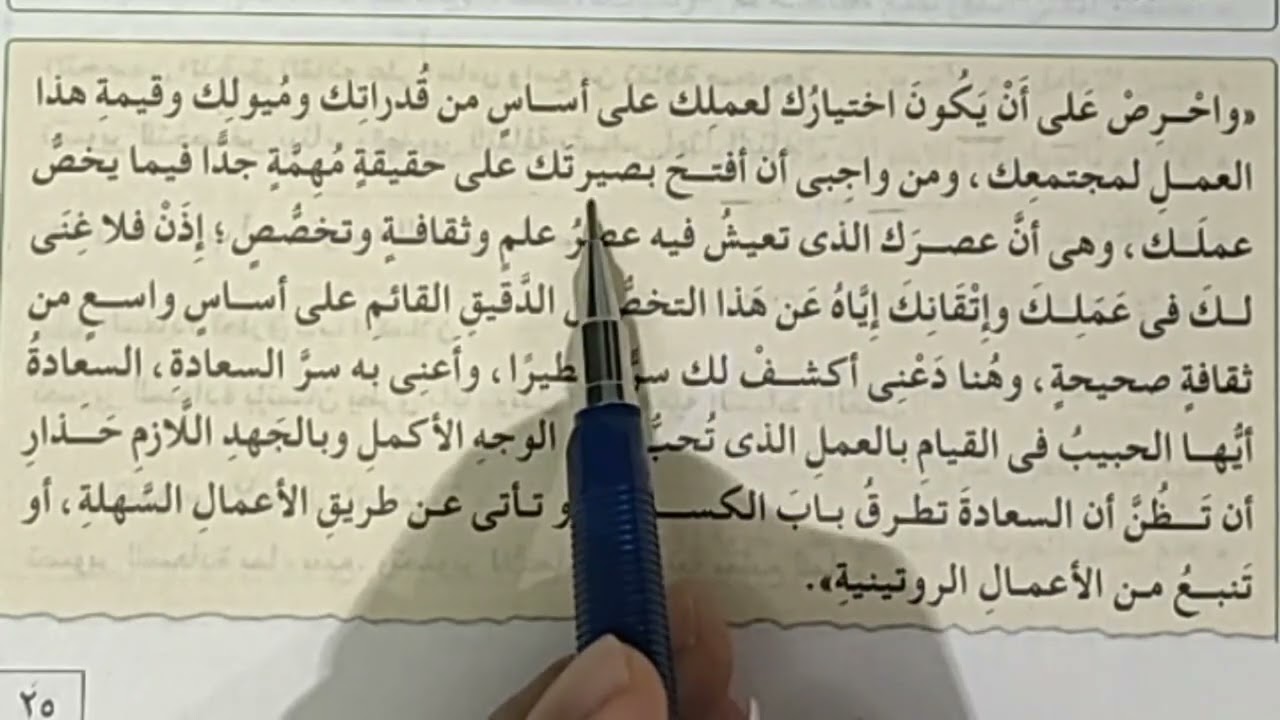 «واحْـرِصْ عَلى أَنْ يَكُونَ اختيارُك لعملِك على أساسٍ من قُدراتِك ومُيولِك وقيمةِ هذا
العمـلِ لمجتمعِك، ومن واجِبى أن أفتـحَ بصيرتَك على حقيقةٍ مُهِمَّةٍ جدًّا فيما يخصُّ
عملَـك، وهى أنَّ عصـرَك الذى تعيشُ فيه عصرُ علمٍ وثقافـةٍ وتخصُّصٍ؛ إِذَنْ فلا غِنَى
لـكَ فى عَمَلِـكَ وإِتْقَانِكَ إِيَّاهُ عَن هَذا الدَّقيقِ القائمِ على أساسٍ واسـعٍ من
ثقافةٍ صحيحةٍ، وهُنا دَعْنِى أكشـفْ لك وأعنِى به سرَّ السعادةِ، السعادةُ
أيُّهـا الحبيبُ فى القيامِ بالعملِ الذى الوجهِ الأكملِ وبالجَهدِ اللَّازمِ حَـذارِ
أن تَـظُنَّ أن السعادةَ تطـرقُ بـابَ تـأتى عـن طريقِ الأعمالِ السَّهلةِ، أو
تَنبـعُ مـن الأعمـالِ الروتينيةِ».
٢٥